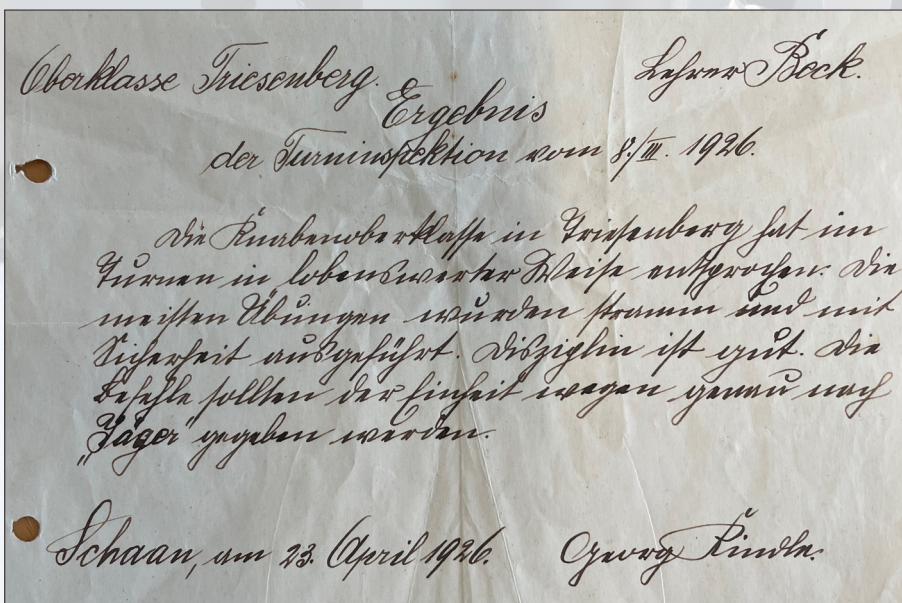 Oberklasse Triesenberg. Lehrer Beck.
Ergebnis
der Turninspektion vom 8./III. 1926.
Die Knabenoberklasse in Triesenberg hat im
Turnen in lobenswerter Weise entsprochen. Die
meisten Übungen wurden stramm und mit
Sicherheit ausgeführt. Disziplin ist gut. Die
Befehle sollten der Einheit wegen genau nach
„Jäger" gegeben werden.
Schaan, am 23. April 1926. Georg Kindle.